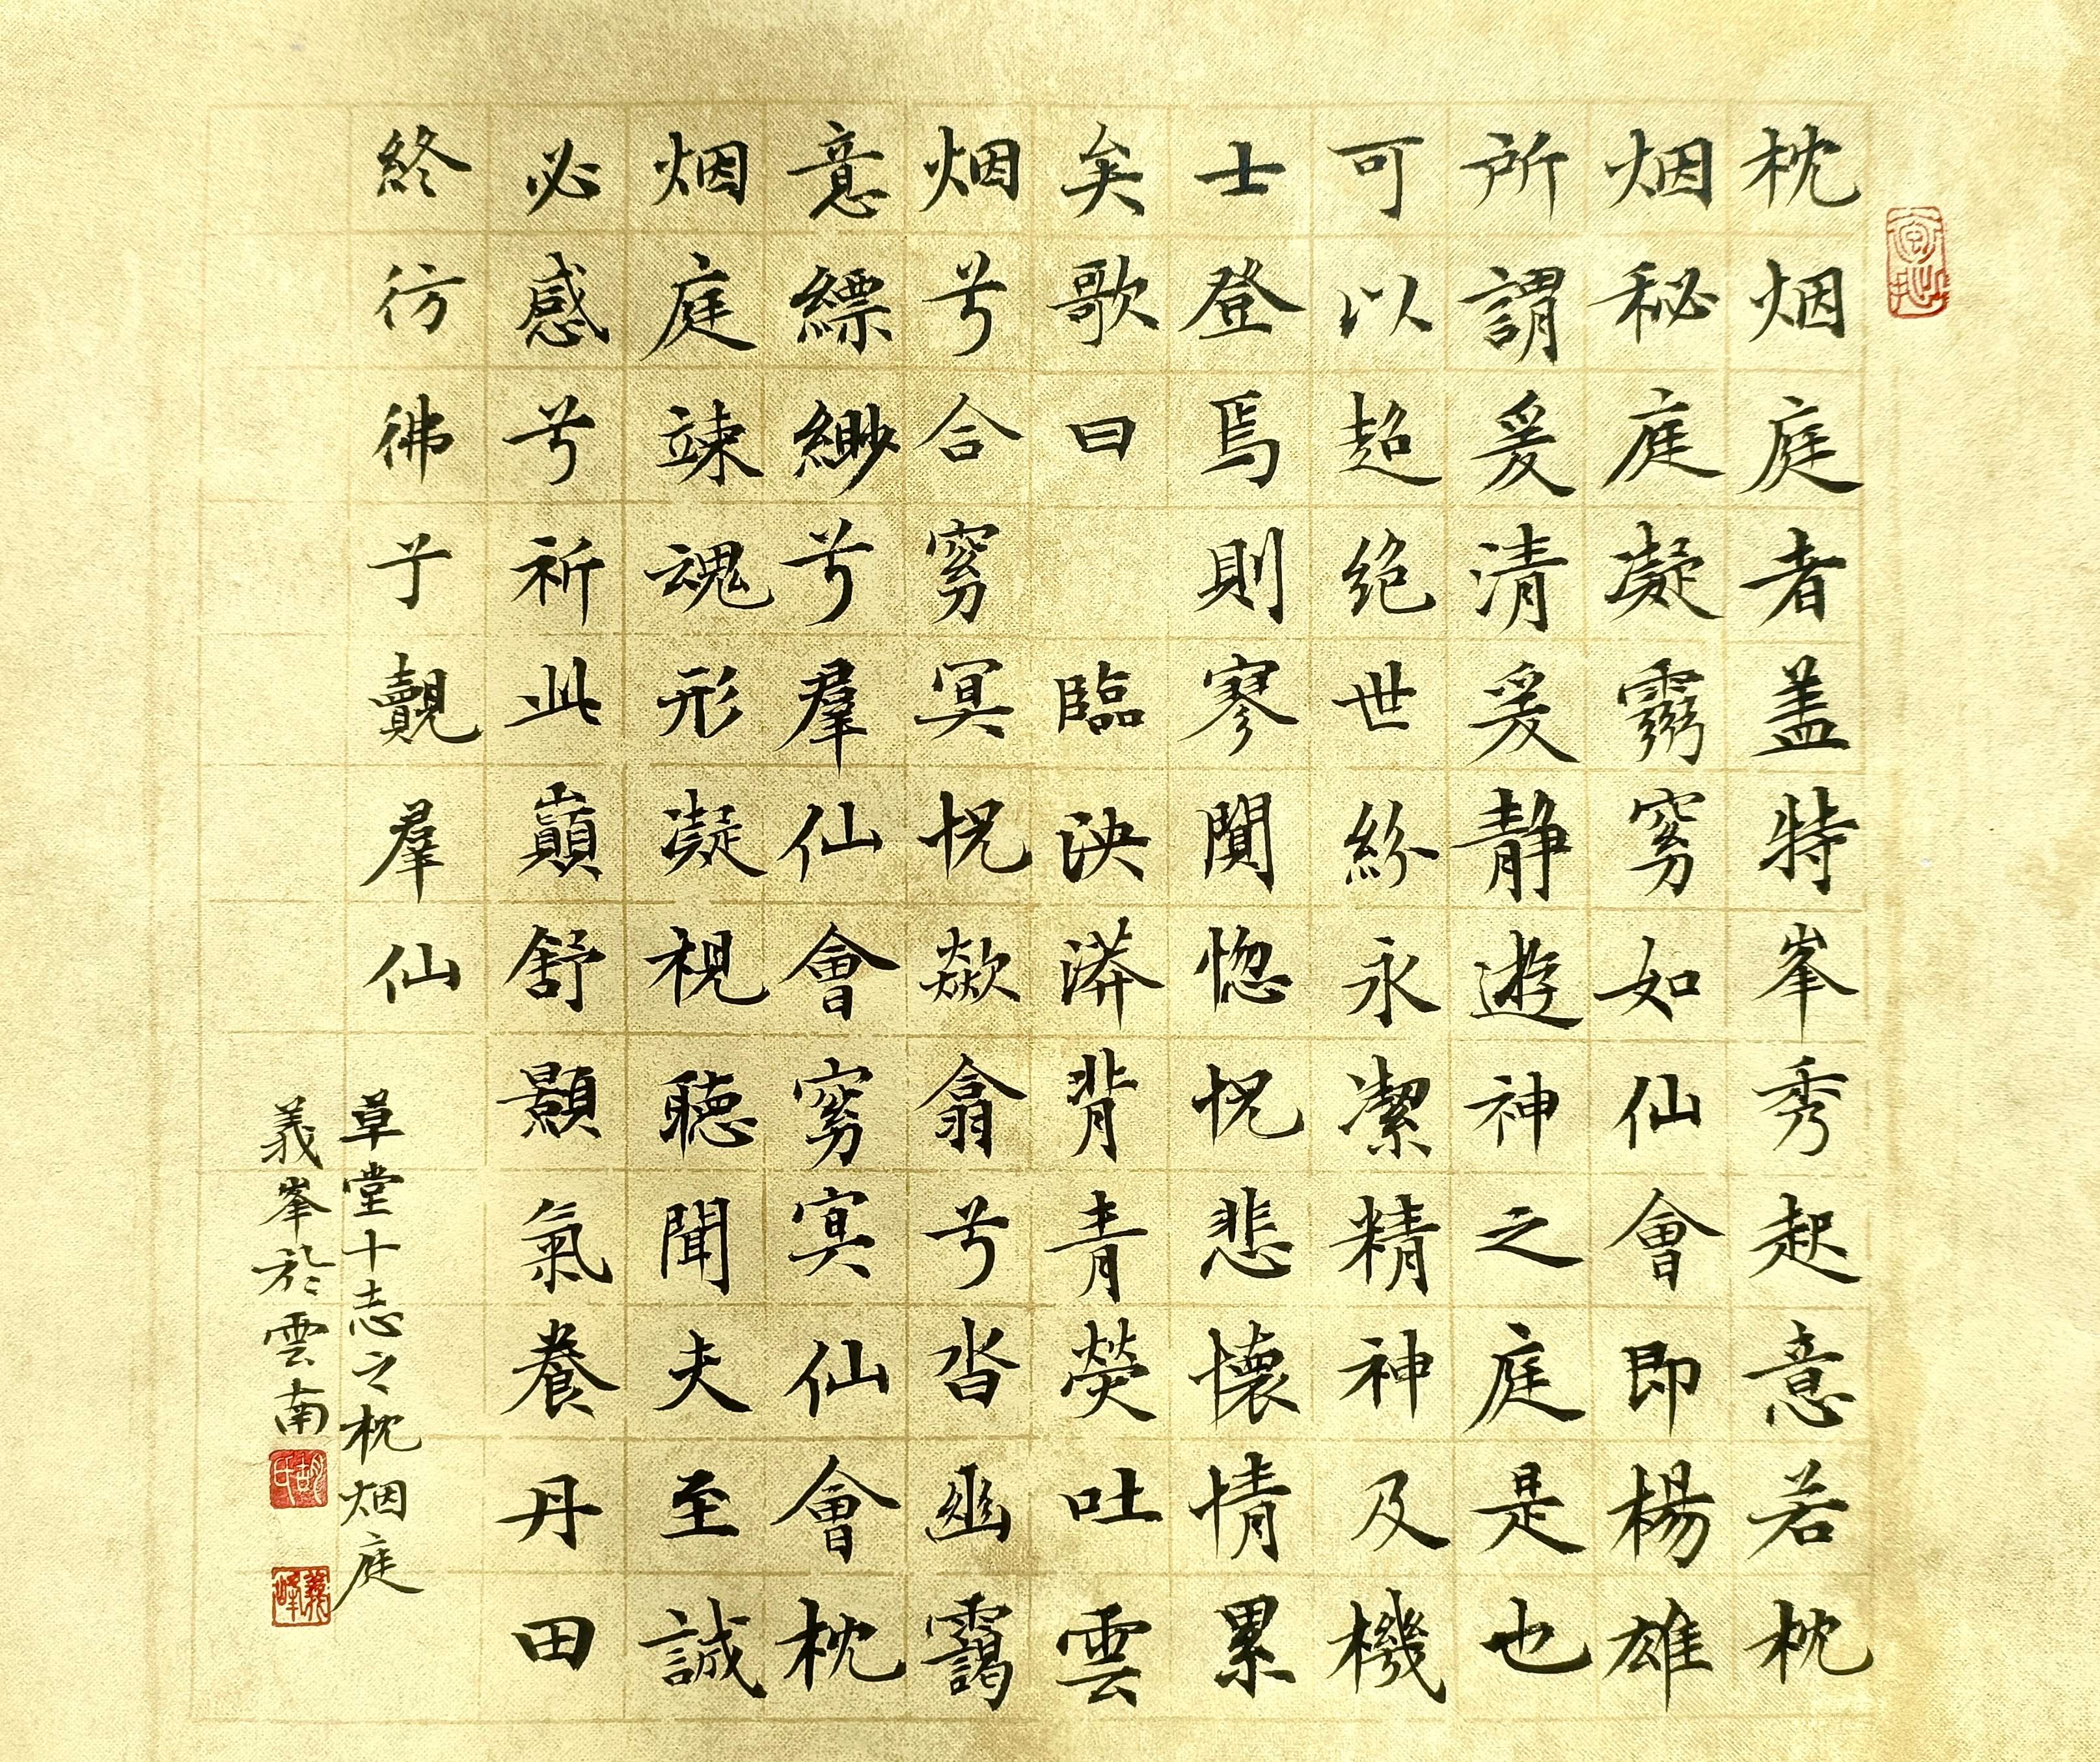 枕烟庭者盖特峯秀起意若枕
烟秘庭凝霛窈如仙會即楊雄
所謂爰清爰静遊神之庭是也
可以超绝世紛永潔精神及機
士登焉則寥闃惚怳悲懷情累
矣歌曰 臨泱漭背青熒吐雲
烟兮合窈冥怳欻翕兮沓幽靄
意縹緲兮羣仙會窈冥仙會枕
烟庭竦魂形凝視聽聞夫至誠
必感兮祈此巔舒顥氣養丹田
終彷彿兮覿羣仙
草堂十志之枕烟庭
義峯於雲南
胡氏
義峰